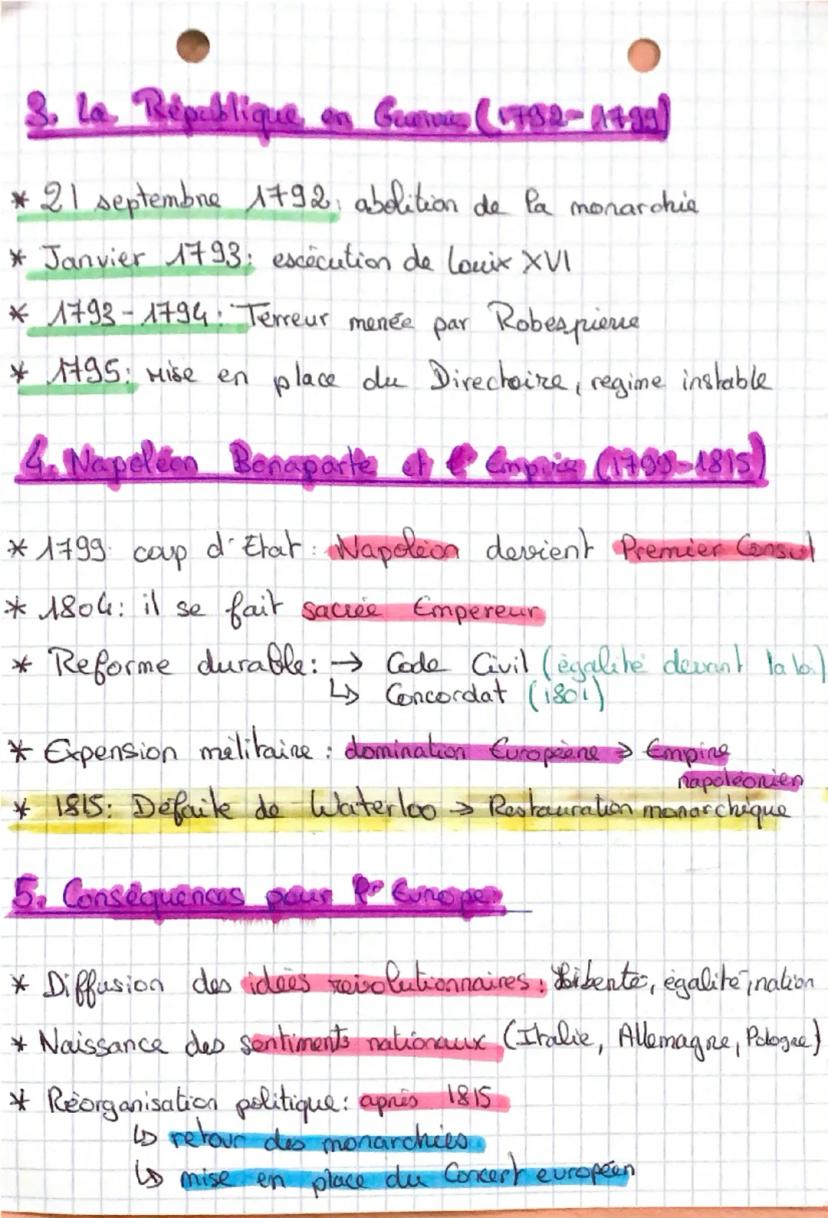 3. La République en Guerre (1792-1799)
* 21 septembre 1792: abolition de la monarchie
* Janvier 1793: escécution de Louix XVI
* 1793-1794: Terreur menée par Robespierre
* 1795: Mise en place du Directoire, regime instable
4. Napoléon Bonaparte et l'Empire (1799-1815)
* 1799: coup d'Etat: Napoléon devient Premier Consul
* 1804: il se fait sacrée Empereur
* Reforme durable: → Code Civil (égalité devant la loi)
↳ Concordat (1801)
* Expension mélitaire: domination Européene → Empire
napoléonien
* 1815: Défaite de Waterloo → Restauration monarchique
5. Conséquences pour l'Europe
* Diffusion des idées révolutionnaires: Liberté, égalité, nation
* Naissance des sentiments nationaux (Italie, Allemagne, Pologne)
* Réorganisation politique: après 1815
↳ retour des monarchies
↳ mise en place du Concert européen